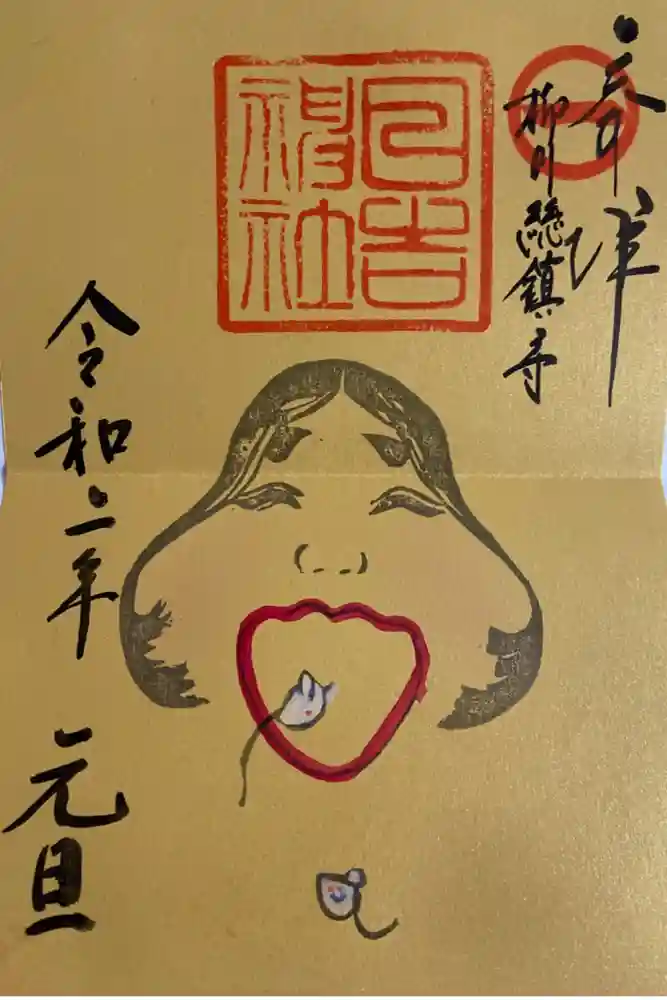 奉拝
柳川総鎮守
日吉
神社
令和二年 元旦